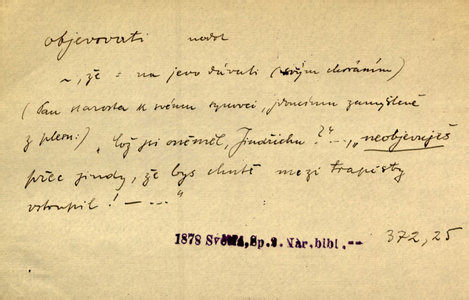 objevovati nedok
~, že = na jevo dávati (svým chováním)
(Pan starosta k svému synovci, jdoucímu zamyšleně
z plesu:) „Což jsi oněměl, Jindřichu?“ – „neobjevuješ
přece jindy, že bys chutě mezi trapisty
vstoupil! – – –“
1878 Světlá, Sp. 2. Nár. bibl. -- 372, 25